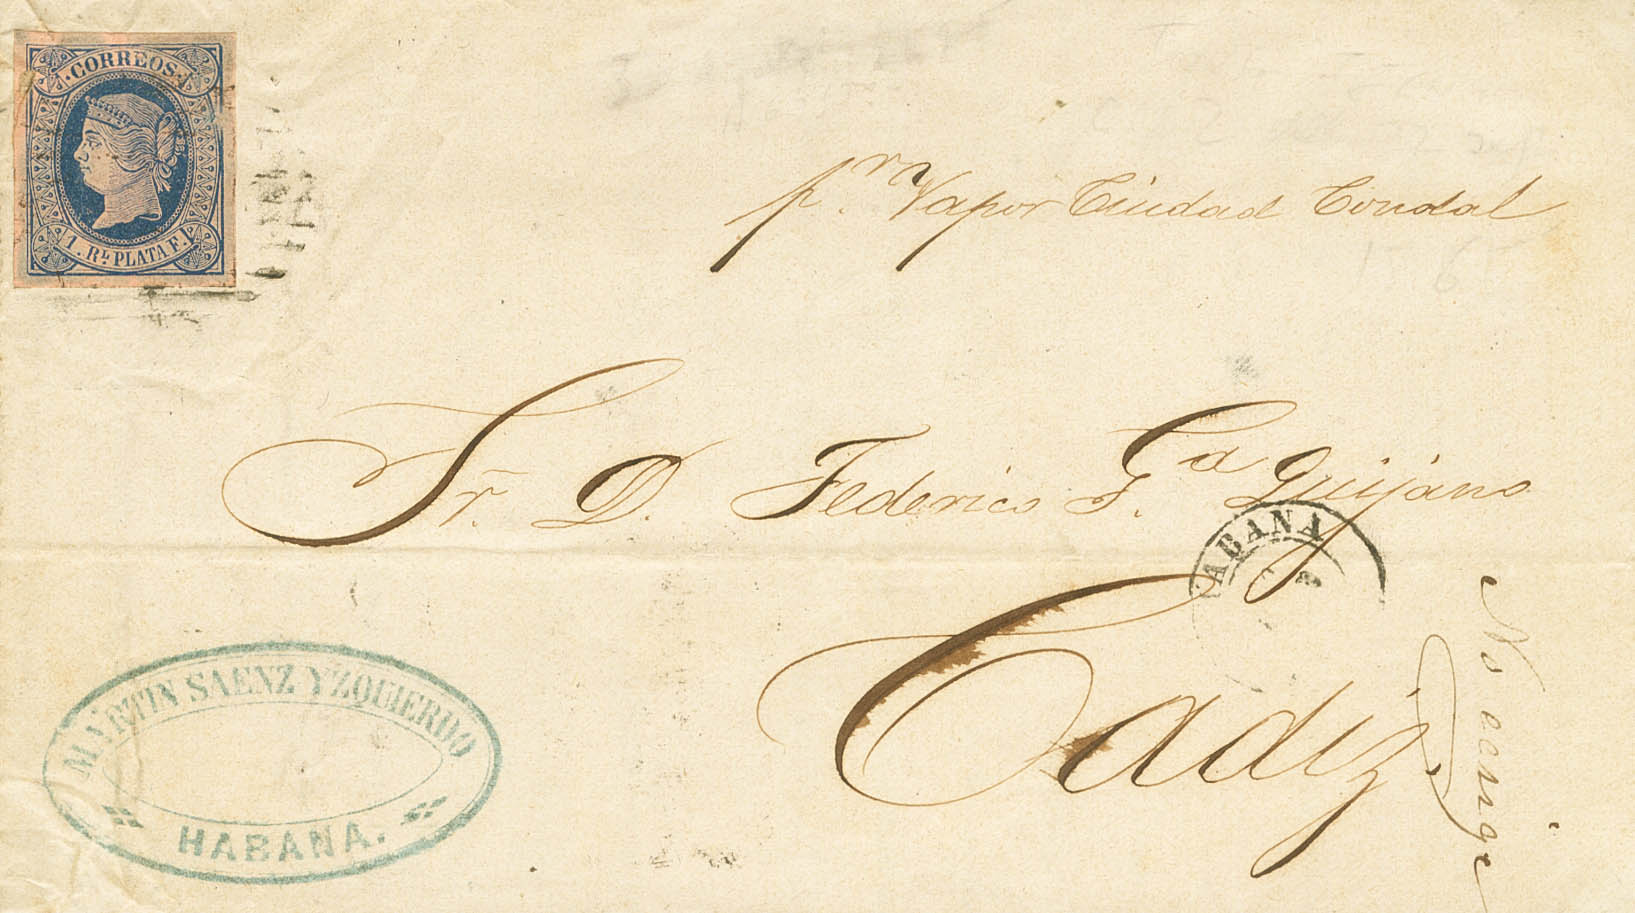 CORREOS
1. Rl. PLATA F.
pr. Vapor Ciudad Condal
Sr. D. Federico F. Ca Quijano
Cadiz
ABANA
MARTIN SAENZ YZQUIERDO
HABANA.